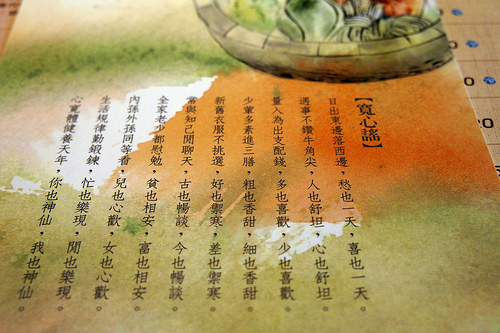 【寬心謠】
日出東邊落西邊，愁也一天，喜也一天。
遇事不鑽牛角尖，人也舒坦，心也舒坦。
量入為出支配錢，多也喜歡，少也喜歡。
少葷多素進三膳，粗也香甜，細也香甜。
新舊衣服不挑選，好也禦寒，差也禦寒。
常與知己閒聊天，古也暢談，今也暢談。
全家老少都慰勉，貧也相安，富也相安。
內孫外孫同等看，兒也心歡，女也心歡。
生活規律勤鍛鍊，忙也樂現，閒也樂現。
心寬體健養天年，你也神仙，我也神仙。